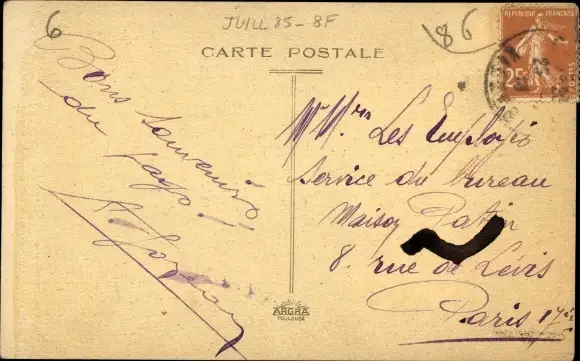 6
JUILL 85 - 8F
86
CARTE POSTALE
REPUBLIQUE FRANÇAISE
25c
POSTES
Bons souvenirs
du pays!
Mrs Les Employés
Service du bureau
Maison Patin
8. rue de Lévis
Paris 17e
ARGRA
TOULOUSE